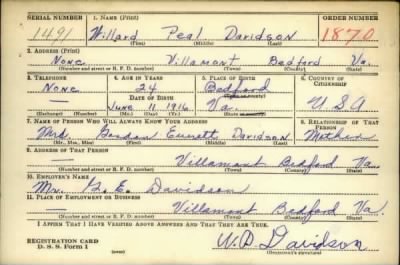 SERIAL NUMBER 1. NAME (Print) ORDER NUMBER
1491 Willard Peal Davidson 1870
(First) (Middle) (Last)
2. ADDRESS (Print)
None Villamont Bedford Va.
(Number and street or R. F. D. number) (Town) (County) (State)
3. TELEPHONE 4. AGE IN YEARS 5. PLACE OF BIRTH 6. COUNTRY OF CITIZENSHIP
None 24 Bedford
DATE OF BIRTH
— June 11 1916 Va. USA
(Exchange) (Number) (Mo.) (Day) (Yr.) (State or country)
7. NAME OF PERSON WHO WILL ALWAYS KNOW YOUR ADDRESS 8. RELATIONSHIP OF THAT PERSON
Mrs. Everett Davidson Mother
(Mr., Mrs., Miss) (First) (Middle) (Last)
9. ADDRESS OF THAT PERSON
— Villamont Bedford Va.
(Number and street or R. F. D. number) (Town) (County) (State)
10. EMPLOYER'S NAME
Mr. G. E. Davidson
11. PLACE OF EMPLOYMENT OR BUSINESS
— Villamont Bedford Va.
(Number and street or R. F. D. number) (Town) (County) (State)
I AFFIRM THAT I HAVE VERIFIED ABOVE ANSWERS AND THAT THEY ARE TRUE.
REGISTRATION CARD
D. S. S. Form 1 W. P. Davidson
(over) (Registrant's signature)